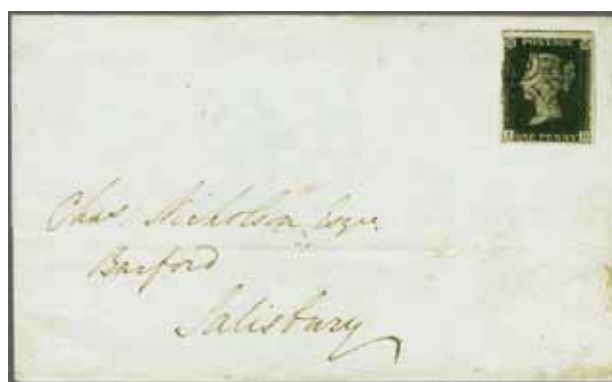 POSTAGE
ONE PENNY
Chas Nicholson Esqre
Barford
Salisbury